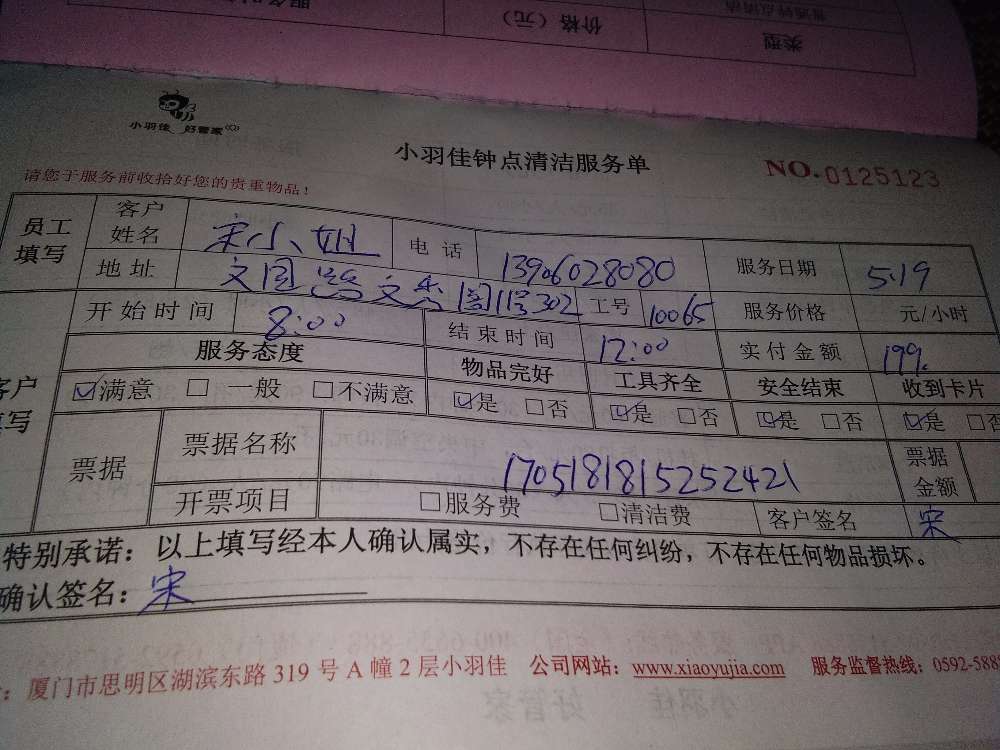 价格（元）
类型
小羽佳 好管家
小羽佳钟点清洁服务单
NO.0125123
请您于服务前收拾好您的贵重物品！
员工填写 客户姓名 宋小姐 电话 13906028080 服务日期 5.19
地址 文园路文秀园11号302 工号 10065 服务价格 元/小时
开始时间 8:00 结束时间 12:00 实付金额 199.
服务态度 物品完好 工具齐全 安全结束 收到卡片
☑满意 □一般 □不满意 ☑是 □否 ☑是 □否 ☑是 □否 ☑是 □否
票据 票据名称 1705181815252421 票据金额
开票项目 □服务费 □清洁费 客户签名 宋
特别承诺：以上填写经本人确认属实，不存在任何纠纷，不存在任何物品损坏。
确认签名：宋
厦门市思明区湖滨东路 319 号 A 幢 2 层小羽佳 公司网站：www.xiaoyujia.com 服务监督热线：0592-588